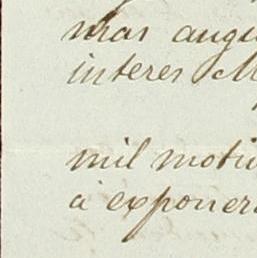 mas augu
interes M
mil motiv
a exponer